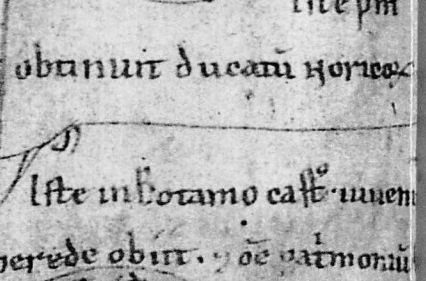 iste pm
obtinuit ducatū Noricor
Iste in botamo castº · iuven
herede obiit . 7 oē patmoniū